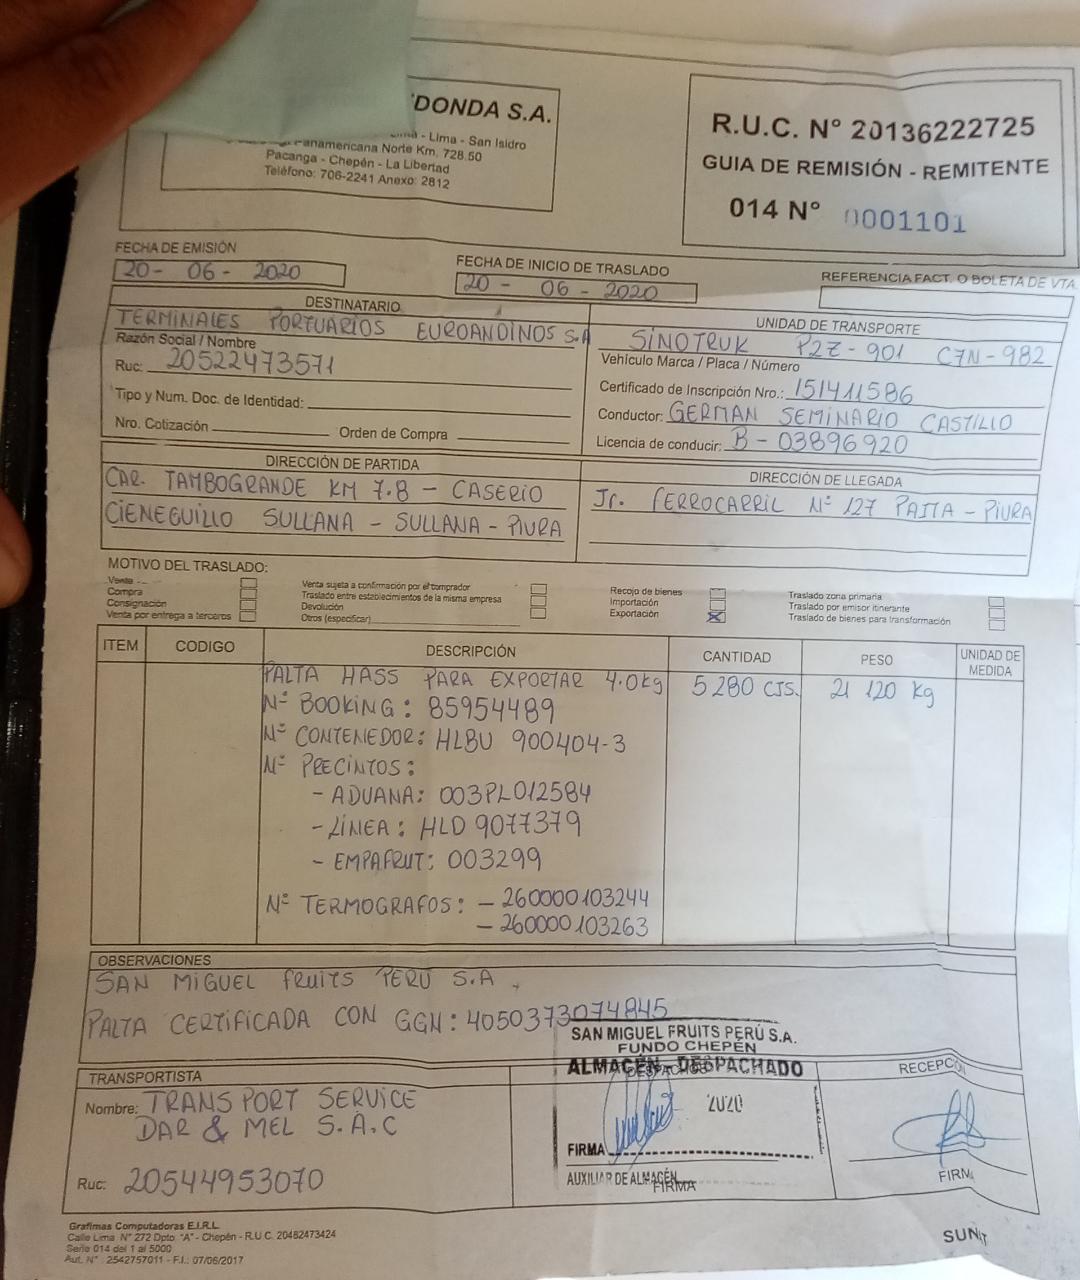 DONDA S.A.
- Lima - San Isidro
Panamericana Norte Km. 728.50
Pacanga - Chepén - La Libertad
Teléfono: 706-2241 Anexo: 2812
R.U.C. N° 20136222725
GUIA DE REMISIÓN - REMITENTE
014 N° 0001101
FECHA DE EMISIÓN
20- 06 - 2020
FECHA DE INICIO DE TRASLADO
20 - 06 - 2020
REFERENCIA FACT. O BOLETA DE VTA.
DESTINATARIO
TERMINALES PORTUARIOS EUROANDINOS S.A
Razón Social / Nombre
Ruc: 20522473571
Tipo y Num. Doc. de Identidad:
Nro. Cotización Orden de Compra
UNIDAD DE TRANSPORTE
SINOTRUK P2Z-901 C7N-982
Vehículo Marca / Placa / Número
Certificado de Inscripción Nro.: 151411586
Conductor: GERMAN SEMINARIO CASTILLO
Licencia de conducir: B - 03896920
DIRECCIÓN DE PARTIDA
CAR. TAMBOGRANDE KM 7.8 - CASERIO
CIENEGUILLO SULLANA - SULLANA - PIURA
DIRECCIÓN DE LLEGADA
Jr. FERROCARRIL N° 127 PAITA - PIURA
MOTIVO DEL TRASLADO:
Venta
Compra
Consignación
Venta por entrega a terceros
Venta sujeta a confirmación por el comprador
Traslado entre establecimientos de la misma empresa
Devolución
Otros (especificar)
Recojo de bienes
Importación
Exportación X
Traslado zona primaria
Traslado por emisor itinerante
Traslado de bienes para transformación
ITEM CODIGO DESCRIPCIÓN CANTIDAD PESO UNIDAD DE MEDIDA
PALTA HASS PARA EXPORTAR 4.0kg 5280 CJS. 21 120 kg
N° BOOKING: 85954489
N° CONTENEDOR: HLBU 900404-3
N° PRECINTOS:
- ADUANA: 003PL012584
- LÍNEA: HLD 9077379
- EMPAFRUT: 003299
N° TERMOGRAFOS: - 260000103244
- 260000103263
OBSERVACIONES
SAN MIGUEL FRUITS PERU S.A
PALTA CERTIFICADA CON GGN: 4050373074845
SAN MIGUEL FRUITS PERÚ S.A.
FUNDO CHEPÉN
ALMACÉN - DESPACHADO
DESPACHO
2020
FIRMA
AUXILIAR DE ALMACÉN
FIRMA
RECEPCIÓ
FIRM
TRANSPORTISTA
Nombre: TRANSPORT SERVICE
DAR & MEL S.A.C
Ruc: 20544953070
Grafimas Computadoras E.I.R.L.
Calle Lima N° 272 Dpto. "A" - Chepén - R.U.C. 20482473424
Serie 014 del 1 al 5000
Aut. N° : 2542757011 - F.I.: 07/06/2017
SUNAT